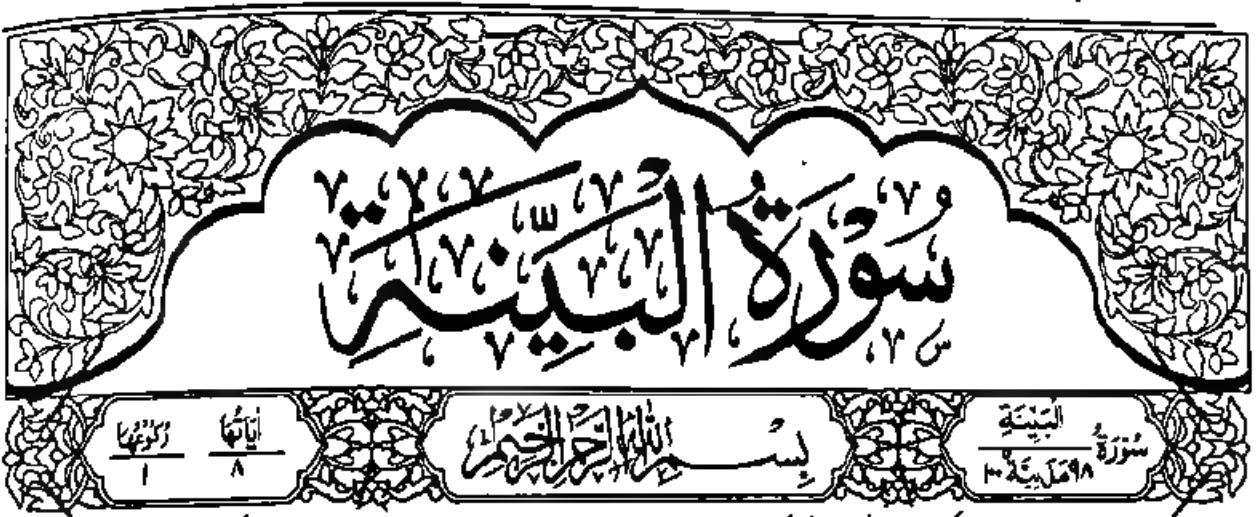 سُوْرَةُ الْبَيِّنَةِ
سُوْرَةُ الْبَيِّنَةِ ٩٨ مَدَنِيَّةٌ ١٠٠
بِسْمِ اللهِ الرَّحْمٰنِ الرَّحِيْمِ
اٰيَاتُهَا ٨
رُكُوْعُهَا ١